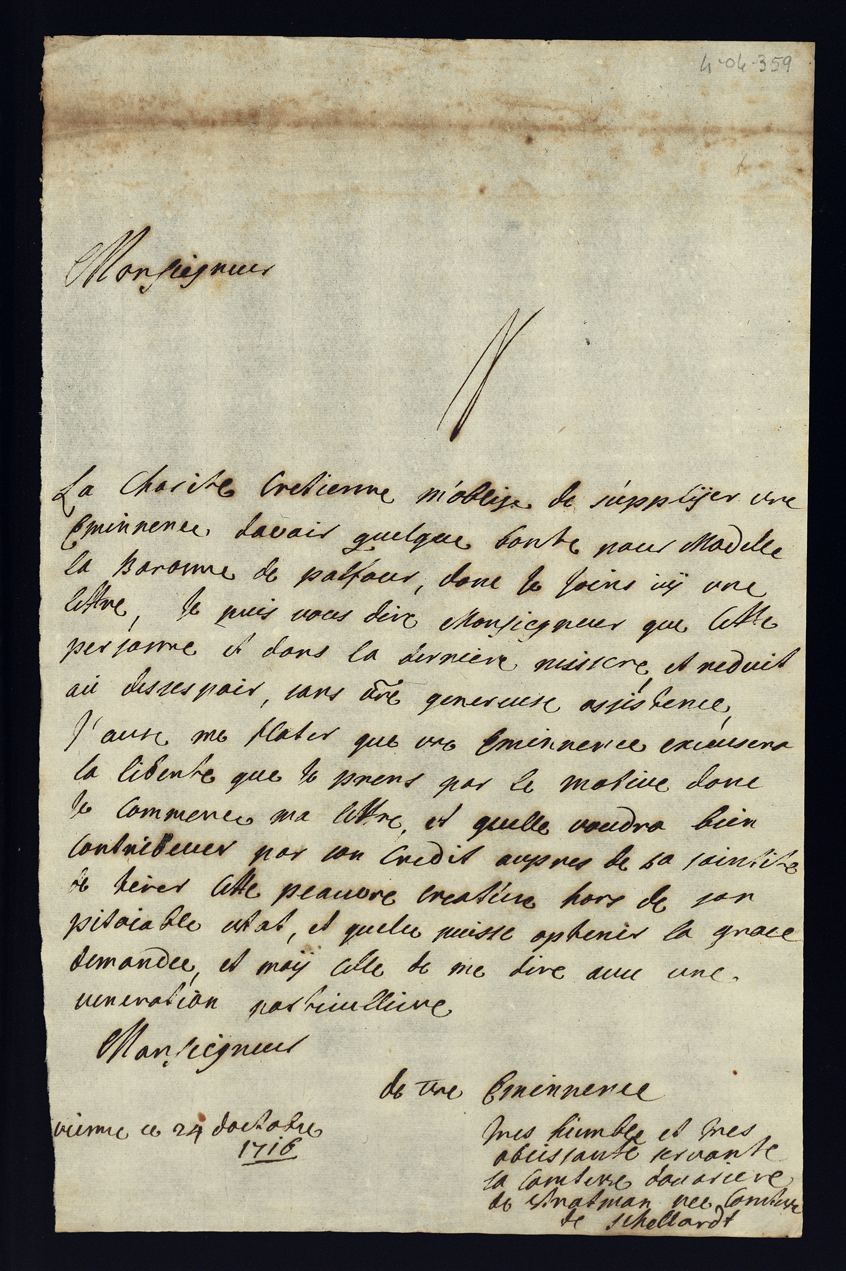 4-04-359
Monsieigneur
La Charite Cretienne m'oblige de supplijer vre
Eminnence davair quelque bonte pour Madelle
la Baronne de palfour, donc je joins icÿ une
lettre, je puis vous dire Monsieigneur que cette
personne et dans la derniere missere, et reduit
au dessespair, sans vre genereuse assistence,
J'ause me flater que vre Eminnence excusera
la liberte que je prens par le motive donc
je Commence ma lettre, et quelle voudra bien
Contribeuer par son Credit aupres de sa saintite
de tirer cette peauvre Creature hors de son
pitoiable etat, et quele puisse optenir la grace
demandee, et moÿ celle de me dire avec une
veneration particulliere
Monsieigneur
de vre Eminnence
vienne ce 24 doctobre
1716
tres humble et tres
obeissante servante
la Comtesse douariere
de Stratman nee Comtesse
de Schellardt